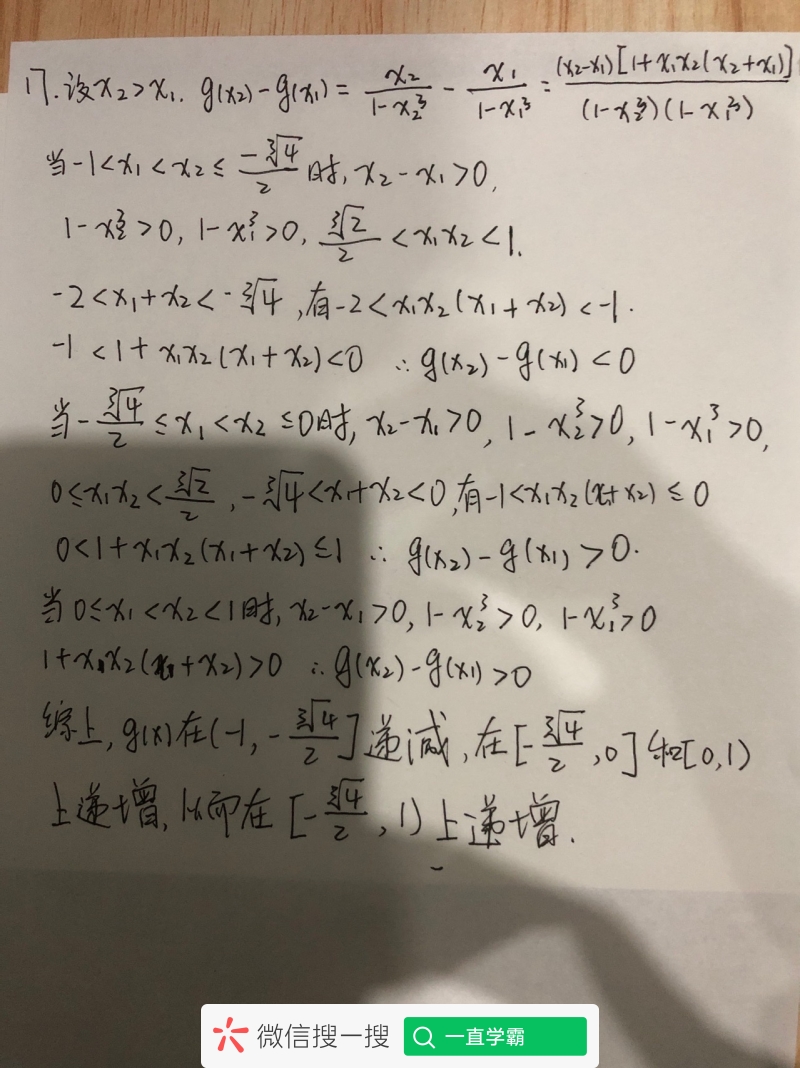 17.设x₂>x₁. g(x₂)-g(x₁)= x₂/(1-x₂³) - x₁/(1-x₁³) = (x₂-x₁)[1+x₁x₂(x₂+x₁)]/(1-x₂³)(1-x₁³)
当-1<x₁<x₂≤ -∛4/2 时, x₂-x₁>0,
1-x₂³>0, 1-x₁³>0, ∛2/2 <x₁x₂<1.
-2<x₁+x₂<-∛4,有-2<x₁x₂(x₁+x₂)<-1.
-1<1+x₁x₂(x₁+x₂)<0 ∴g(x₂)-g(x₁)<0
当-∛4/2≤x₁<x₂≤0时, x₂-x₁>0, 1-x₂³>0, 1-x₁³>0,
0≤x₁x₂<∛2/2, -∛4<x₁+x₂<0,有-1<x₁x₂(x₁+x₂)≤0
0<1+x₁x₂(x₁+x₂)≤1 ∴g(x₂)-g(x₁)>0.
当0≤x₁<x₂<1时, x₂-x₁>0, 1-x₂³>0, 1-x₁³>0
1+x₁x₂(x₁+x₂)>0 ∴g(x₂)-g(x₁)>0
综上, g(x)在(-1,-∛4/2]递减,在[-∛4/2,0]和[0,1)
上递增,从而在[-∛4/2,1)上递增.
微信搜一搜 一直学霸